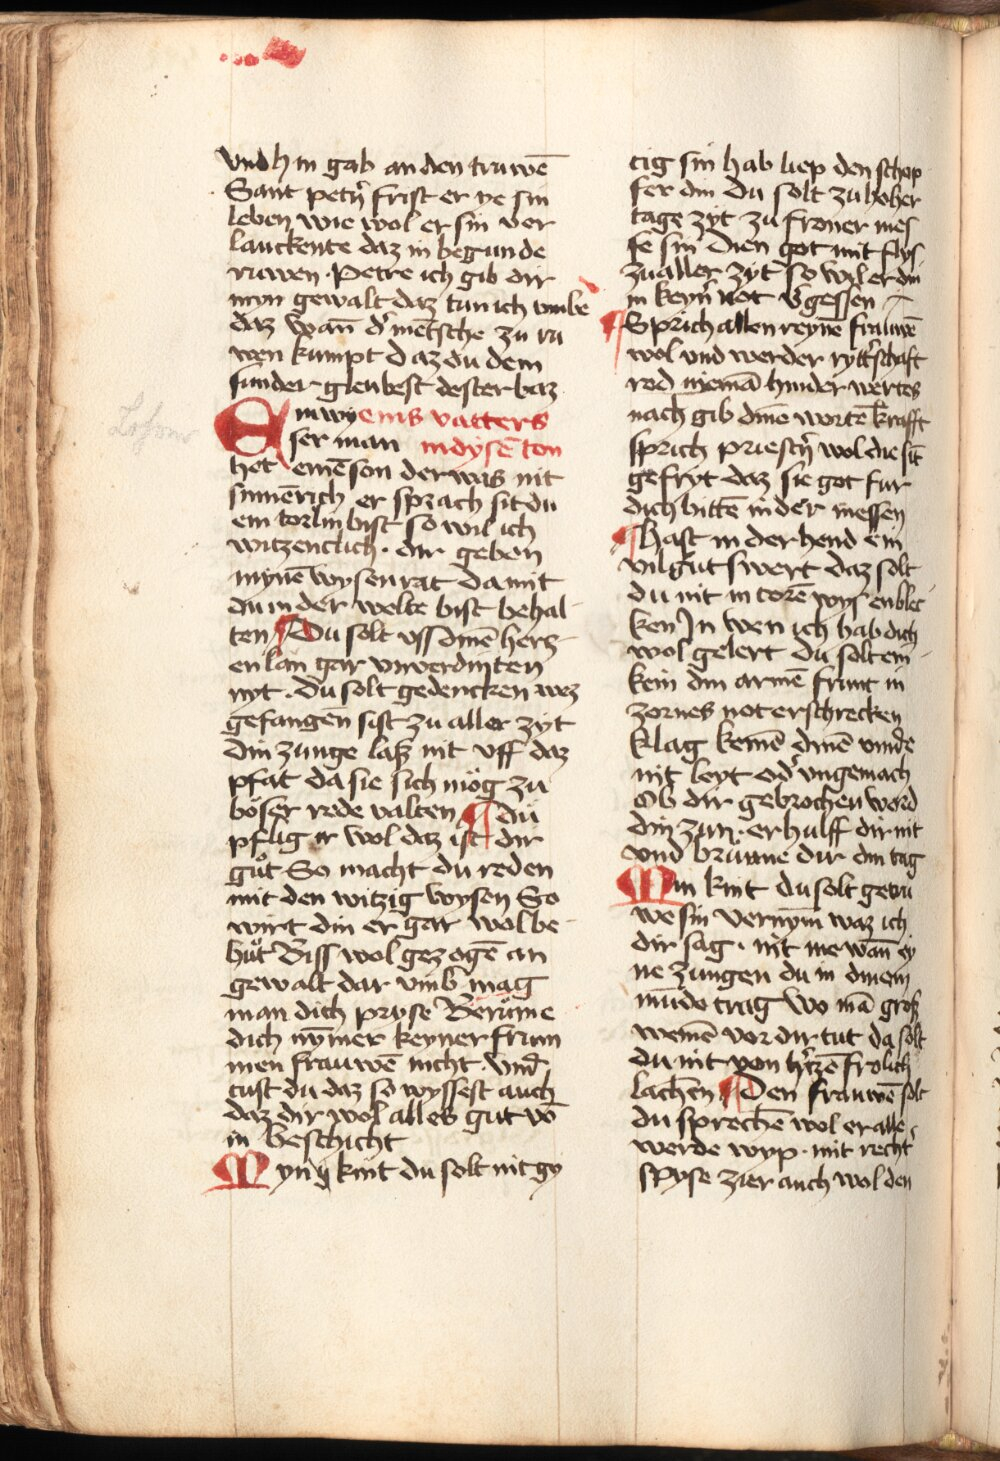 vnd h in gab an den truwē
Sant petrꝰ frist er ye sin
leben wie wol er sin ver
lauckente daz in begunde
ruwen · Petre ich gib dir
myn gewalt daz tun ich vmbe
daz wañ dˀ mētsche zu ru
wen kumpt daz du dem
sunder gleubest dester baz
Ein wy eins vatters
ser man in dysē ton
het einē son der was nit
sinnērich er sprach sit du
ein torlin bist so wil ich
witzenclich · dir geben
mynē wysen rat da mit
du in der welte bist behal
ten ¶ Du solt vss dinē hercz
en lan gar vnverdinten
nyt · Du solt gedencken wez
gefangen sist zu aller zyt
din zunge laß nit vff daz
pfat da sie sich mög zu
böser rede valten ¶ du
pflig ir wol daz ist dir
gůt So macht du reden
mit den witzig wysen So
wirt din er gar wol be
hůt Biss wol gezogē an
gewalt dar vmb mag
man dich pryse Berüme
dich nȳmer keyner frum
men frauwē nicht · vnd
tust du daz so wyssest auch
daz dir wol alles gut vō
in Geschicht
Myn kint du solt nit gy
tig sin hab liep den schop
fer din du solt zu hoher
tage zyt zu froner mes
se sin Dien got mit flys
zu aller zyt so wil er din
in keynˀ not vˀgessen
¶ Sprich allen reynē frauwē
wol vnd werder rytterschaft
red niemā hinder wertes
nach gib dinē wortē krafft
sprich priestˀn wol die sit
gefryt daz sie got fur
dich bittē in der messen
¶ Hast in der hend ein
vil gut swert daz solt
du nit in torē wys enblec
ken Jn wen ich hab dich
wol gelert du solt ein
kein din armē frunt in
zornes not erschrecken
klag keinē dinē vinde
nit leyt odˀ vngemach
Ob dir gebrochen word
din zun · er hulff dir nit
vnd brünne dir din tag
Min kint du solt getru
we sin vernym̄ waz ich
dir sag · nit me wañ ey
ne zungen du in dinem
munde trag Wo mā groß
weinē vor dir tut da solt
du nit von hˀtzē frolich
lachen ¶ Den frauwē solt
du sprechē wol er alle
werde wyp · mit recht
spyse zier auch wol den